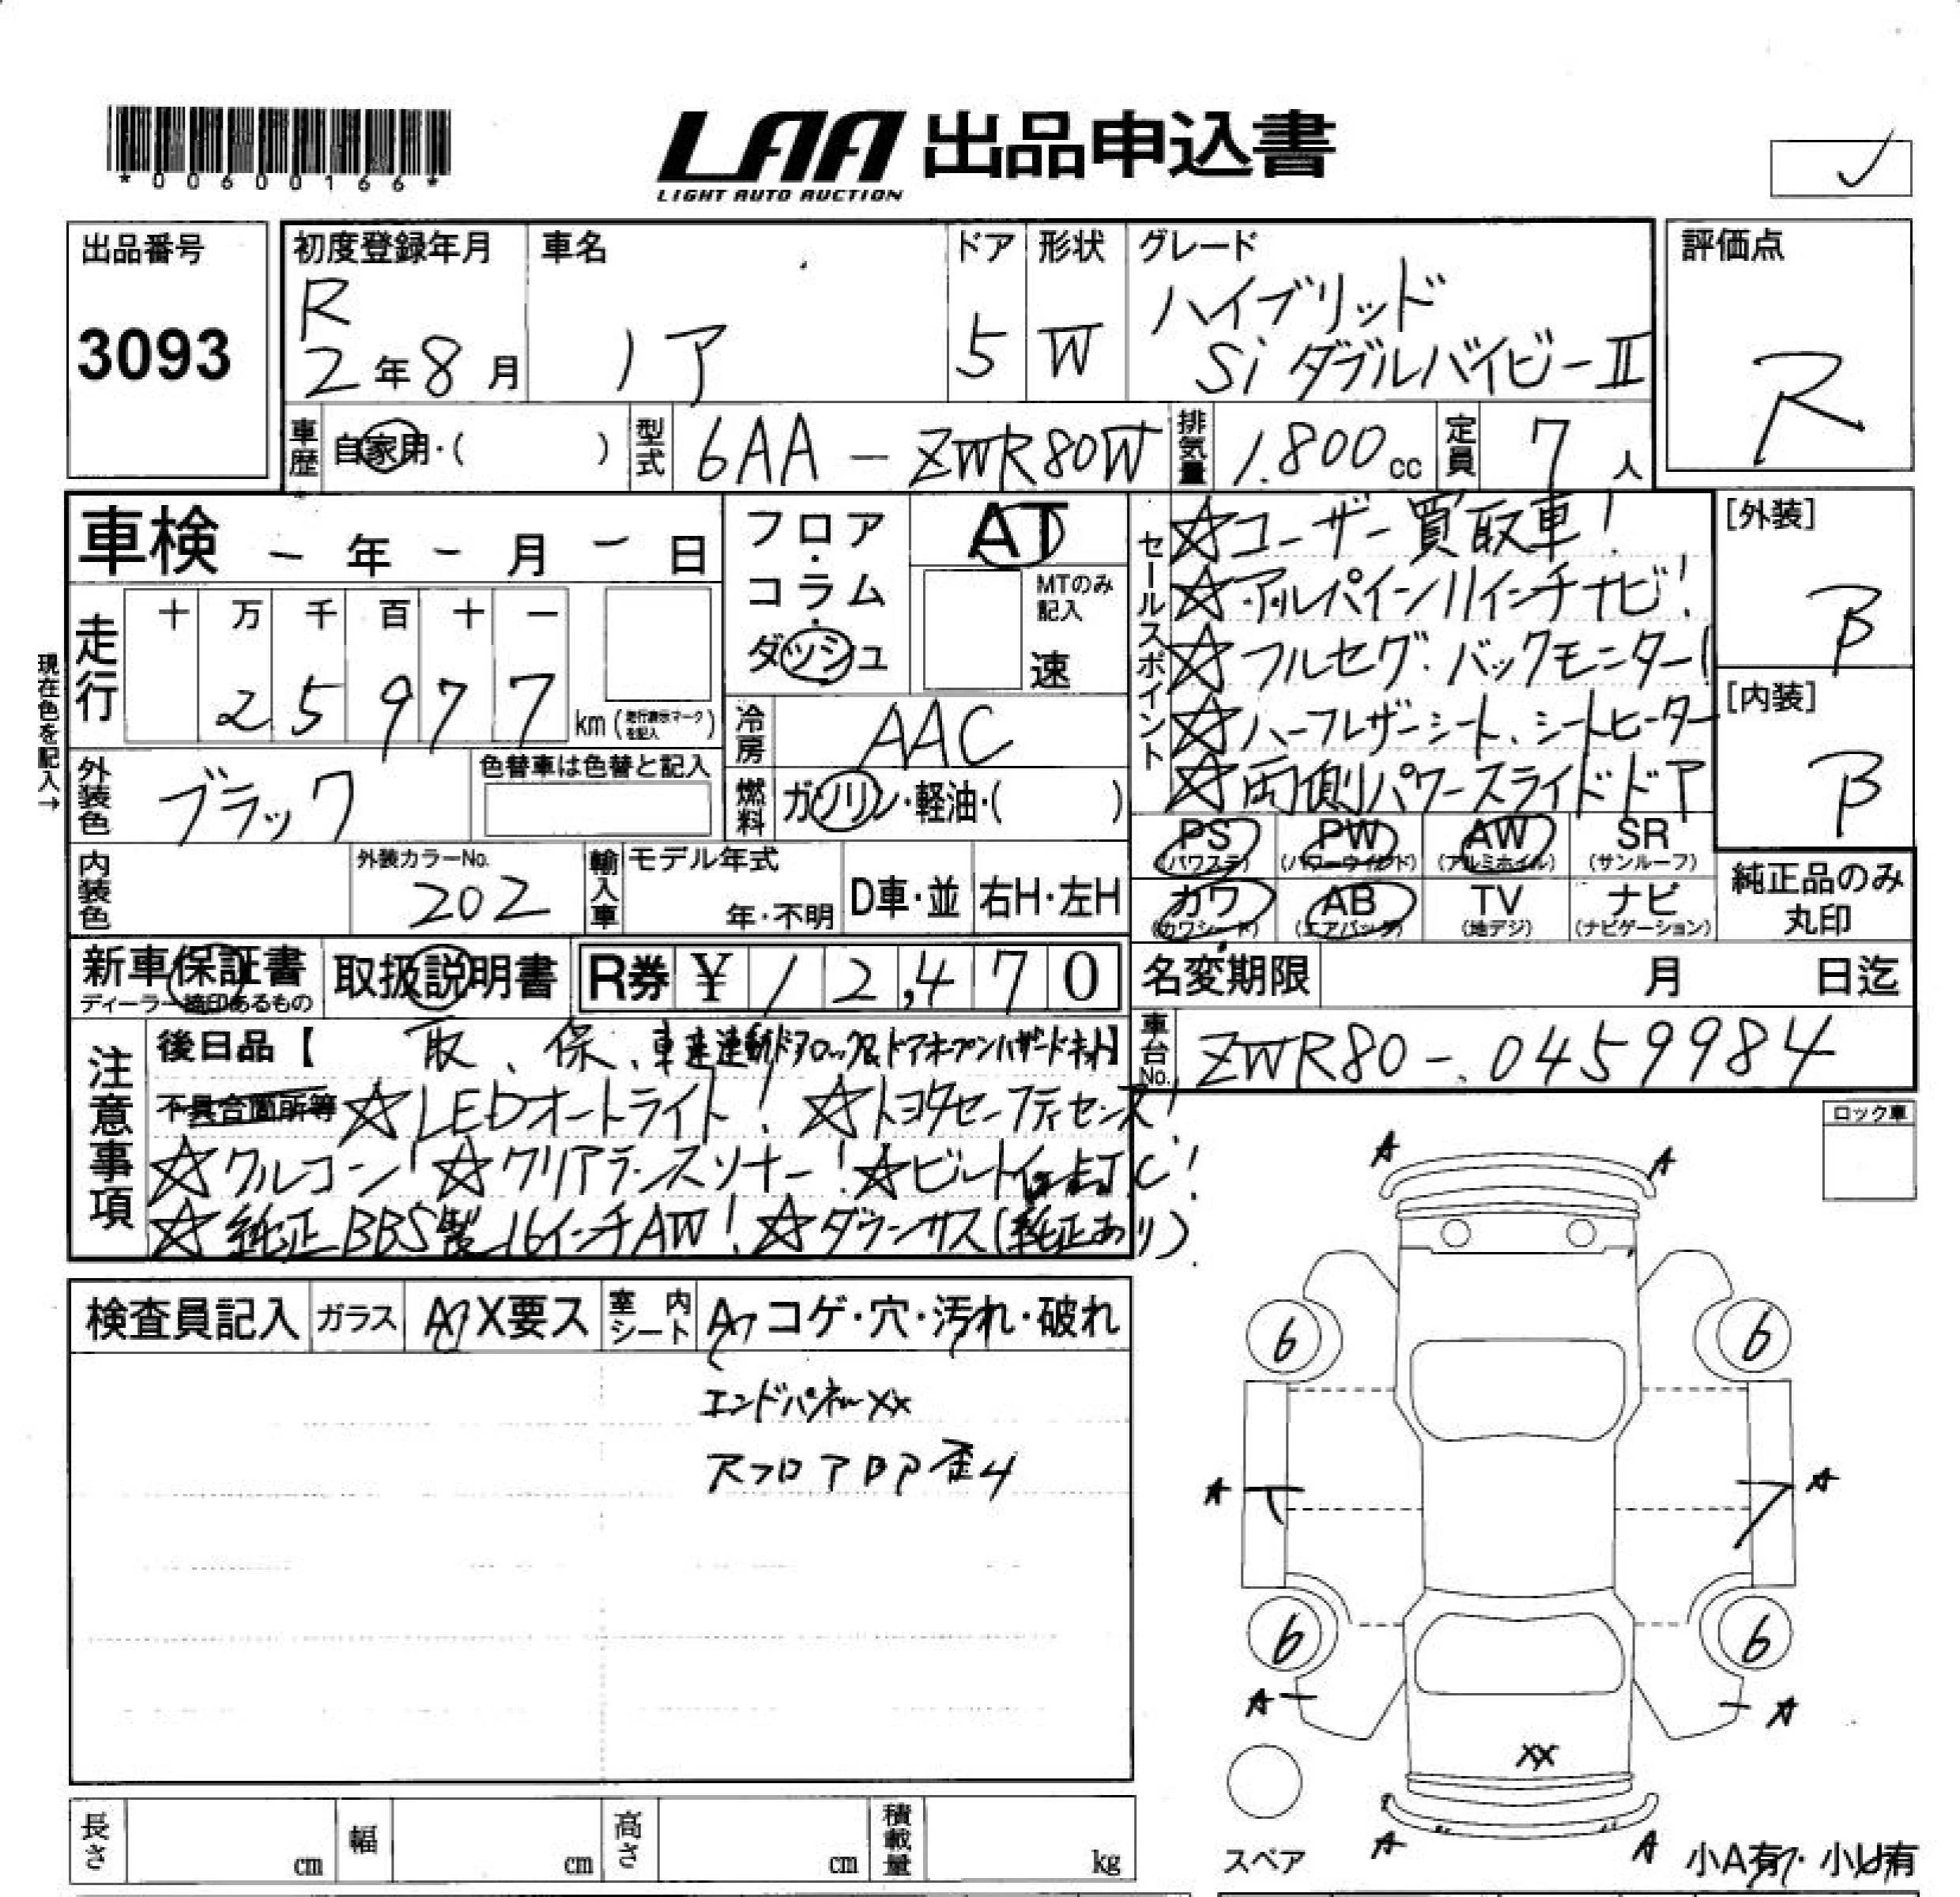 *00600166*
LAA 出品申込書
LIGHT AUTO AUCTION
出品番号
3093
初度登録年月
R
2年8月
車名
ノア
ドア
5
形状
W
グレード
ハイブリッド
Si ダブルバイビーⅡ
評価点
R
車歴
自家用・( )
型式
6AA - ZWR80W
排気量
1.800cc
定員
7人
車検 - 年 - 月 - 日
フロア・コラム・ダッシュ
AT
MTのみ記入
速
セールスポイント
☆ユーザー買取車!
☆アルパイン11インチナビ!
☆フルセグ・バックモニター!
☆ハーフレザーシート、シートヒーター
☆両側パワースライドドア
[外装]
B
[内装]
B
現在色を記入→
走行
十 万 千 百 十 一
2 5 9 7 7
km(走行表示マークを記入)
冷房
AAC
外装色
ブラック
色替車は色替と記入
燃料
ガソリン・軽油・( )
PS (パワステ)
PW (パワーウインド)
AW (アルミホイル)
SR (サンルーフ)
カワ (カワシート)
AB (エアバッグ)
TV (地デジ)
ナビ (ナビゲーション)
純正品のみ丸印
内装色
外装カラーNo.
202
輸入車
モデル年式
年・不明
D車・並
右H・左H
新車保証書
ディーラー捺印あるもの
取扱説明書
R券 ¥ 12,470
名変期限 月 日迄
車台No.
ZWR80-0459984
注意事項
後日品【 取、保、車速連動ドアロック&ドアオープンハザードキット】
不具合箇所等 ☆LEDオートライト! ☆トヨタセーフティセンス!
☆クルコン! ☆クリアランスソナー! ☆ビルトインETC!
☆純正BBS製16インチAW! ☆ダウンサス(純正あり)
ロック車
検査員記入
ガラス
A X要ス
室内シート
A コゲ・穴・汚れ・破れ
エンドパネルXX
Rフロア
A A
6 6
A A
6 6
A A
XX
A A
スペア
小A有・小U有
長さ cm
幅 cm
高さ cm
積載量 kg